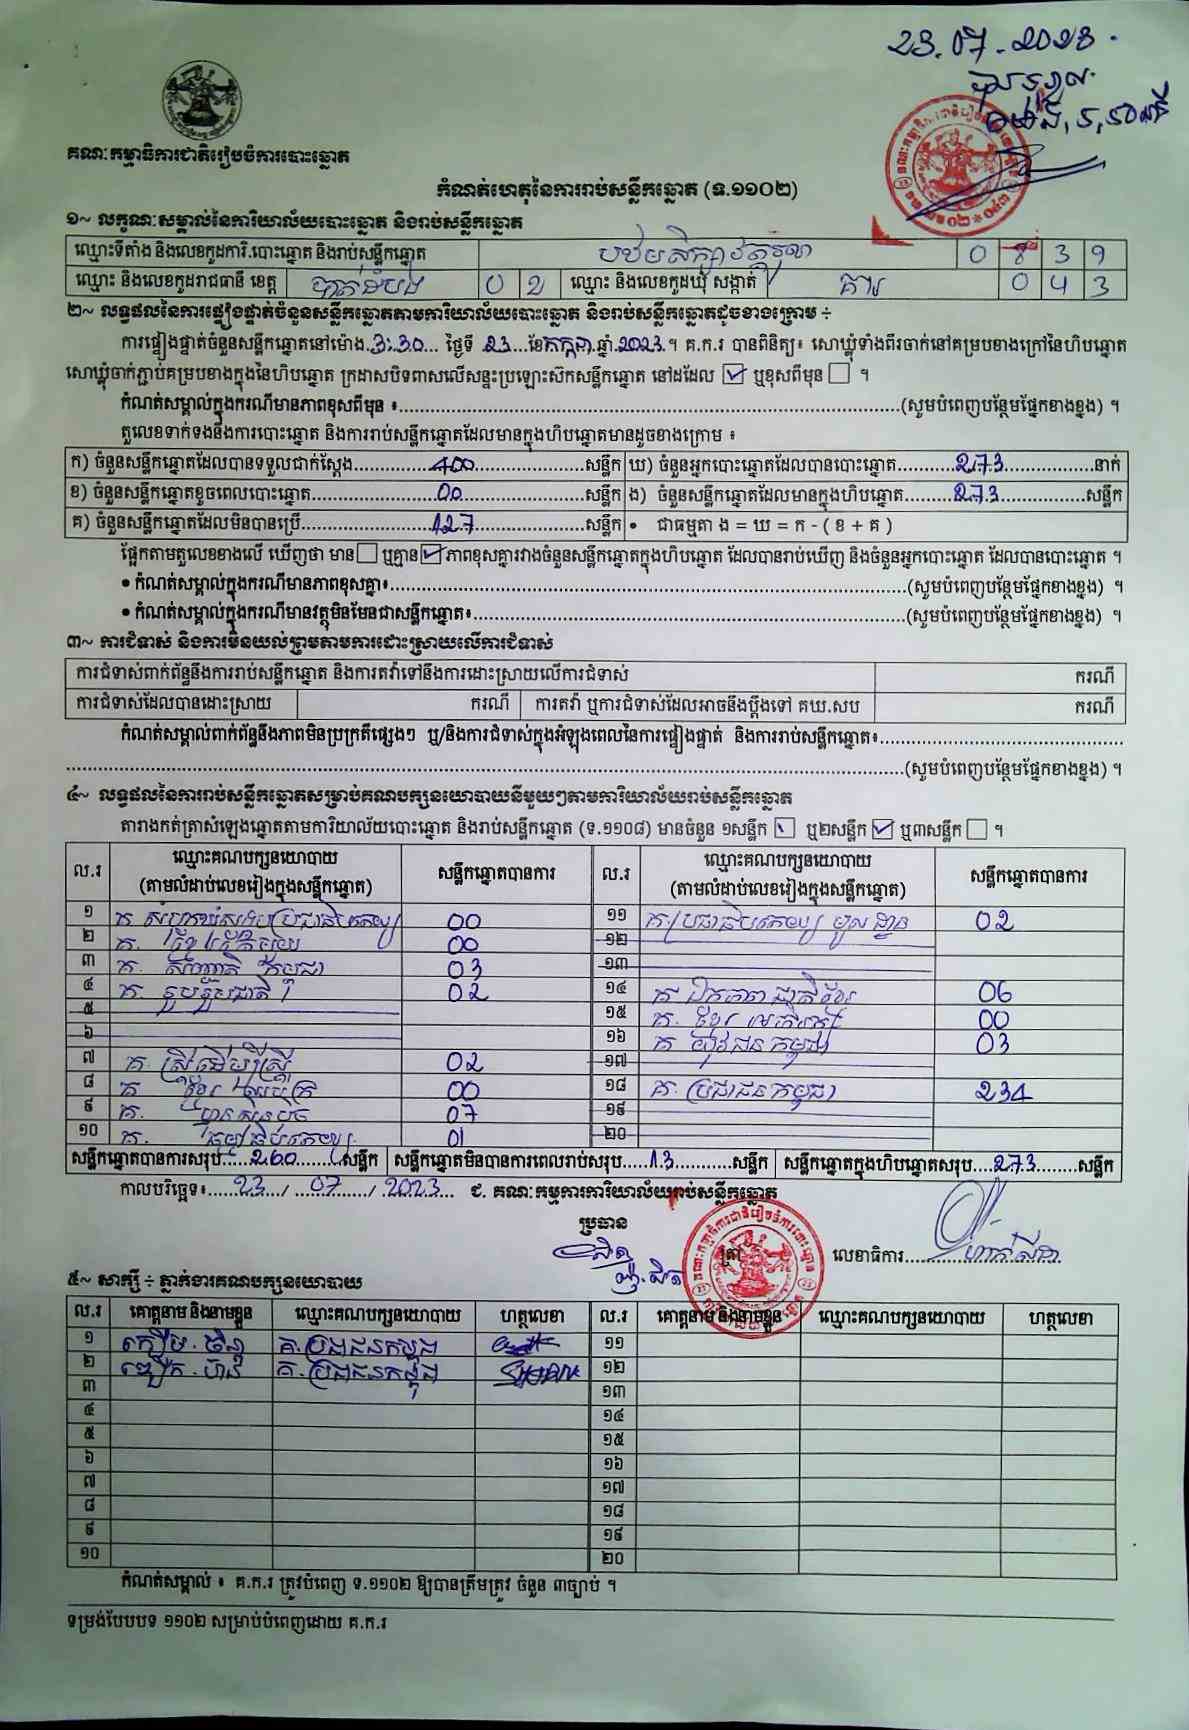 23.07.2023
គណៈកម្មាធិការជាតិរៀបចំការបោះឆ្នោត
កំណត់ហេតុនៃការរាប់សន្លឹកឆ្នោត (ទ.១១០២)
១~ លក្ខណៈសម្គាល់នៃការិយាល័យបោះឆ្នោត និងរាប់សន្លឹកឆ្នោត
ឈ្មោះទីតាំង និងលេខកូដការិ.បោះឆ្នោត និងរាប់សន្លឹកឆ្នោត 0 8 3 9
ឈ្មោះ និងលេខកូដរាជធានី ខេត្ត បាត់ដំបង 0 2 ឈ្មោះ និងលេខកូដឃុំ សង្កាត់ 0 4 3
២~ លទ្ធផលនៃការផ្ទៀងផ្ទាត់ចំនួនសន្លឹកឆ្នោតតាមការិយាល័យបោះឆ្នោត និងរាប់សន្លឹកឆ្នោតដូចខាងក្រោម ÷
ការផ្ទៀងផ្ទាត់ចំនួនសន្លឹកឆ្នោតនៅម៉ោង.3:30... ថ្ងៃទី .23...ខែកក្កដា.ឆ្នាំ.2023.។ គ.ក.រ បានពិនិត្យ៖ សោឃ្លុំទាំងពីរចាក់នៅគម្របខាងក្រៅនៃហិបឆ្នោត
សោឃ្លុំចាក់ភ្ជាប់គម្របខាងក្នុងនៃហិបឆ្នោត ក្រដាសបិទពាសលើសន្ទះប្រឡោះស៊កសន្លឹកឆ្នោត នៅដដែល ☑ ឬខុសពីមុន ☐ ។
កំណត់សម្គាល់ក្នុងករណីមានភាពខុសពីមុន ៖......(សូមបំពេញបន្ថែមផ្នែកខាងខ្នង) ។
តួលេខទាក់ទងនឹងការបោះឆ្នោត និងការរាប់សន្លឹកឆ្នោតដែលមានក្នុងហិបឆ្នោតមានដូចខាងក្រោម ៖
ក) ចំនួនសន្លឹកឆ្នោតដែលបានទទួលជាក់ស្តែង......400......សន្លឹក ឃ) ចំនួនអ្នកបោះឆ្នោតដែលបានបោះឆ្នោត......273......នាក់
ខ) ចំនួនសន្លឹកឆ្នោតខូចពេលបោះឆ្នោត......00......សន្លឹក ង) ចំនួនសន្លឹកឆ្នោតដែលមានក្នុងហិបឆ្នោត......273......សន្លឹក
គ) ចំនួនសន្លឹកឆ្នោតដែលមិនបានប្រើ......127......សន្លឹក • ជាធម្មតា ង = ឃ = ក - ( ខ + គ )
ផ្អែកតាមតួលេខខាងលើ ឃើញថា មាន ☐ ឬគ្មាន ☑ ភាពខុសគ្នារវាងចំនួនសន្លឹកឆ្នោតក្នុងហិបឆ្នោត ដែលបានរាប់ឃើញ និងចំនួនអ្នកបោះឆ្នោត ដែលបានបោះឆ្នោត ។
• កំណត់សម្គាល់ក្នុងករណីមានភាពខុសគ្នា៖......(សូមបំពេញបន្ថែមផ្នែកខាងខ្នង) ។
• កំណត់សម្គាល់ក្នុងករណីមានវត្ថុមិនមែនជាសន្លឹកឆ្នោត៖......(សូមបំពេញបន្ថែមផ្នែកខាងខ្នង) ។
៣~ ការជំទាស់ និងការមិនយល់ព្រមតាមការដោះស្រាយលើការជំទាស់
ការជំទាស់ពាក់ព័ន្ធនឹងការរាប់សន្លឹកឆ្នោត និងការតវ៉ាទៅនឹងការដោះស្រាយលើការជំទាស់ ករណី
ការជំទាស់ដែលបានដោះស្រាយ ករណី ការតវ៉ា ឬការជំទាស់ដែលអាចនឹងប្តឹងទៅ គឃ.សប ករណី
កំណត់សម្គាល់ពាក់ព័ន្ធនឹងភាពមិនប្រក្រតីផ្សេងៗ ឬ/និងការជំទាស់ក្នុងអំឡុងពេលនៃការផ្ទៀងផ្ទាត់ និងការរាប់សន្លឹកឆ្នោត៖......
......(សូមបំពេញបន្ថែមផ្នែកខាងខ្នង) ។
៤~ លទ្ធផលនៃការរាប់សន្លឹកឆ្នោតសម្រាប់គណបក្សនយោបាយនីមួយៗតាមការិយាល័យរាប់សន្លឹកឆ្នោត
តារាងកត់ត្រាសំឡេងឆ្នោតតាមការិយាល័យបោះឆ្នោត និងរាប់សន្លឹកឆ្នោត (ទ.១១០៨) មានចំនួន ១សន្លឹក ឬ២សន្លឹក ☑ ឬ៣សន្លឹក ☐ ។
ល.រ ឈ្មោះគណបក្សនយោបាយ សន្លឹកឆ្នោតបានការ ល.រ ឈ្មោះគណបក្សនយោបាយ សន្លឹកឆ្នោតបានការ
(តាមលំដាប់លេខរៀងក្នុងសន្លឹកឆ្នោត) (តាមលំដាប់លេខរៀងក្នុងសន្លឹកឆ្នោត)
១ 00 ១១ គ.ប្រជាធិបតេយ្យ មូលដ្ឋាន 02
២ គ. ខ្មែរតែមួយ 00 ១២
៣ គ. សញ្ជាតិ កម្ពុជា 03 ១៣
៤ គ. រួបរួមជាតិ 02 ១៤ គ. ឯកភាពជាតិខ្មែរ 06
៥ ១៥ 00
៦ ១៦ គ. យុវជនកម្ពុជា 03
៧ គ. ស្ត្រីដើម្បីស្ត្រី 02 ១៧
៨ 00 ១៨ គ. ប្រជាជនកម្ពុជា 234
៩ 07 ១៩
១០ 01 ២០
សន្លឹកឆ្នោតបានការសរុប......260......សន្លឹក សន្លឹកឆ្នោតមិនបានការពេលរាប់សរុប.....13.........សន្លឹក សន្លឹកឆ្នោតក្នុងហិបឆ្នោតសរុប....273.......សន្លឹក
កាលបរិច្ឆេទ៖......23..../....07......./.2023.... ជ. គណៈកម្មការការិយាល័យរាប់សន្លឹកឆ្នោត
ប្រធាន
ត្រា លេខាធិការ......
៥~ សាក្សី ÷ ភ្នាក់ងារគណបក្សនយោបាយ
ល.រ គោត្តនាម និងនាមខ្លួន ឈ្មោះគណបក្សនយោបាយ ហត្ថលេខា ល.រ គោត្តនាម និងនាមខ្លួន ឈ្មោះគណបក្សនយោបាយ ហត្ថលេខា
១ គ.ប្រជាជនកម្ពុជា ១១
២ គ.ប្រជាជនកម្ពុជា ១២
៣ ១៣
៤ ១៤
៥ ១៥
៦ ១៦
៧ ១៧
៨ ១៨
៩ ១៩
១០ ២០
កំណត់សម្គាល់ ៖ គ.ក.រ ត្រូវបំពេញ ទ.១១០២ ឱ្យបានត្រឹមត្រូវ ចំនួន ៣ច្បាប់ ។
ទម្រង់បែបបទ ១១០២ សម្រាប់បំពេញដោយ គ.ក.រ